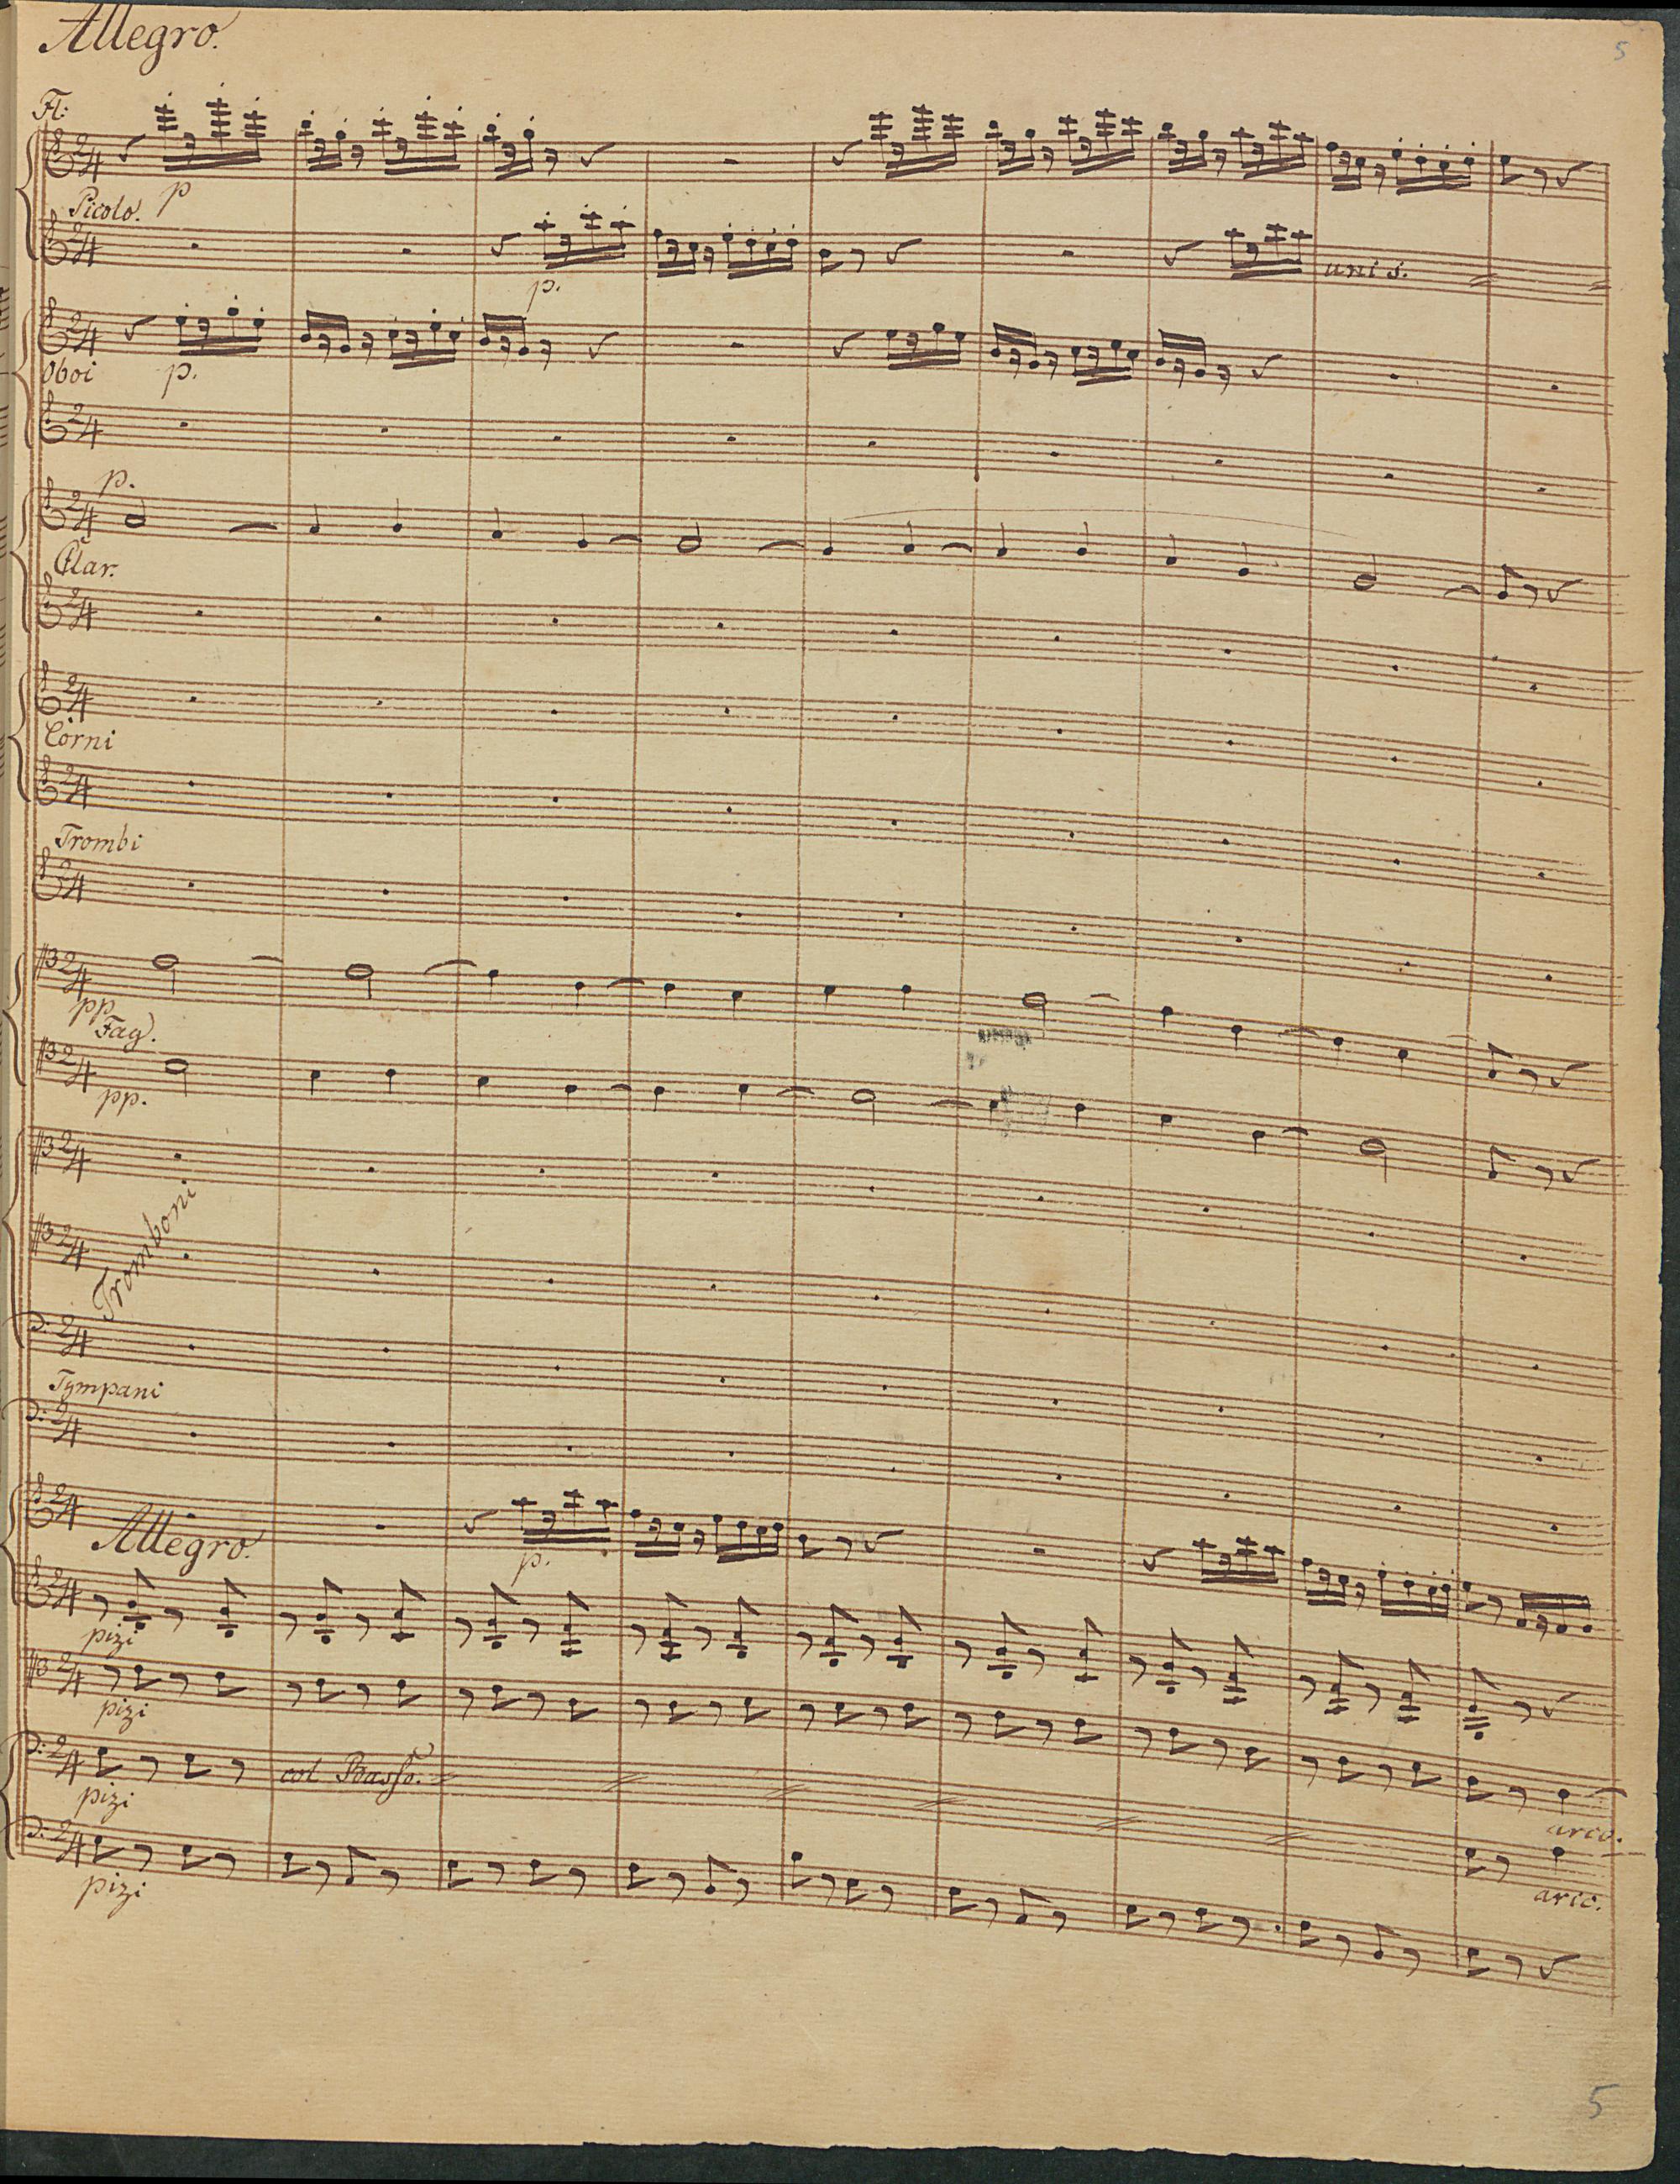 Allegro.
5
Fl:
p
Picolo.
p.
unis.
Oboi
p.
p.
Clar.
Corni
Trombi
pp
Fag.
pp.
Tromboni
Tympani
Allegro.
p.
pizi
pizi
pizi
col Basso.
arco.
pizi
arco.
5